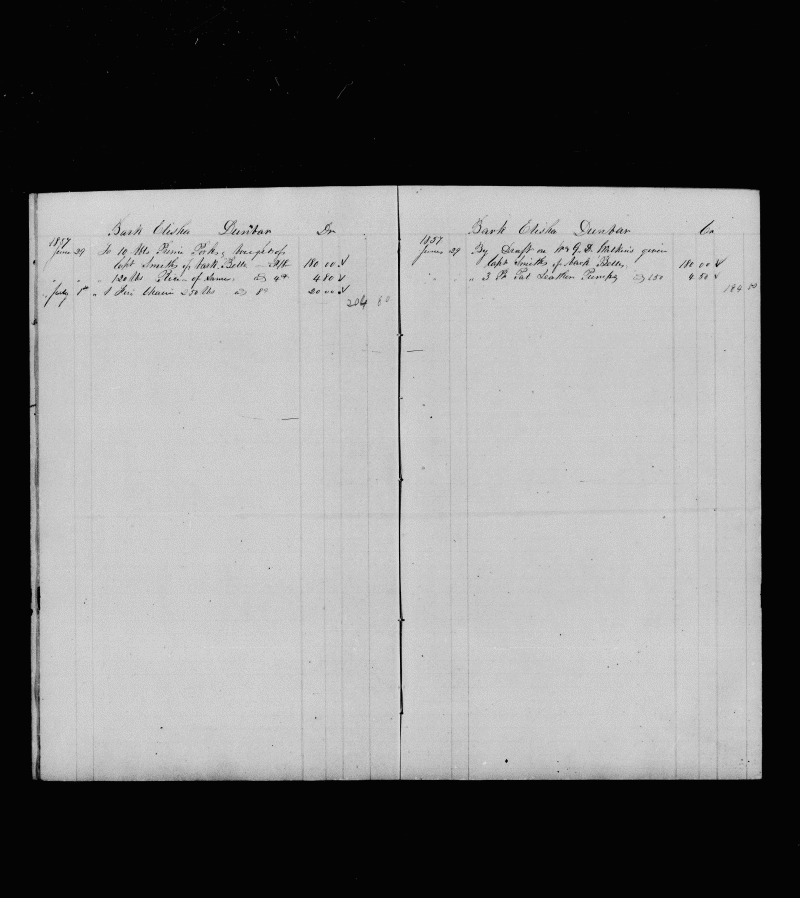 Bark Elisha Dunbar Dr
1857
June 29 To 10 bbls Prime Pork,
Capt Smith of Bark Belle 180 00
" " " 120 lbs of Same @ 4c 4 80
July 1st " 1 Chain 250 lbs @ 8c 20 00
204 80
Bark Elisha Dunbar Cr
1857
June 29 By Draft on G. D. given
Capt Smith of Bark Belle, 180 00
" " " 3 Pr Pat Leather Pumps @ 1 50 4 50
184 50